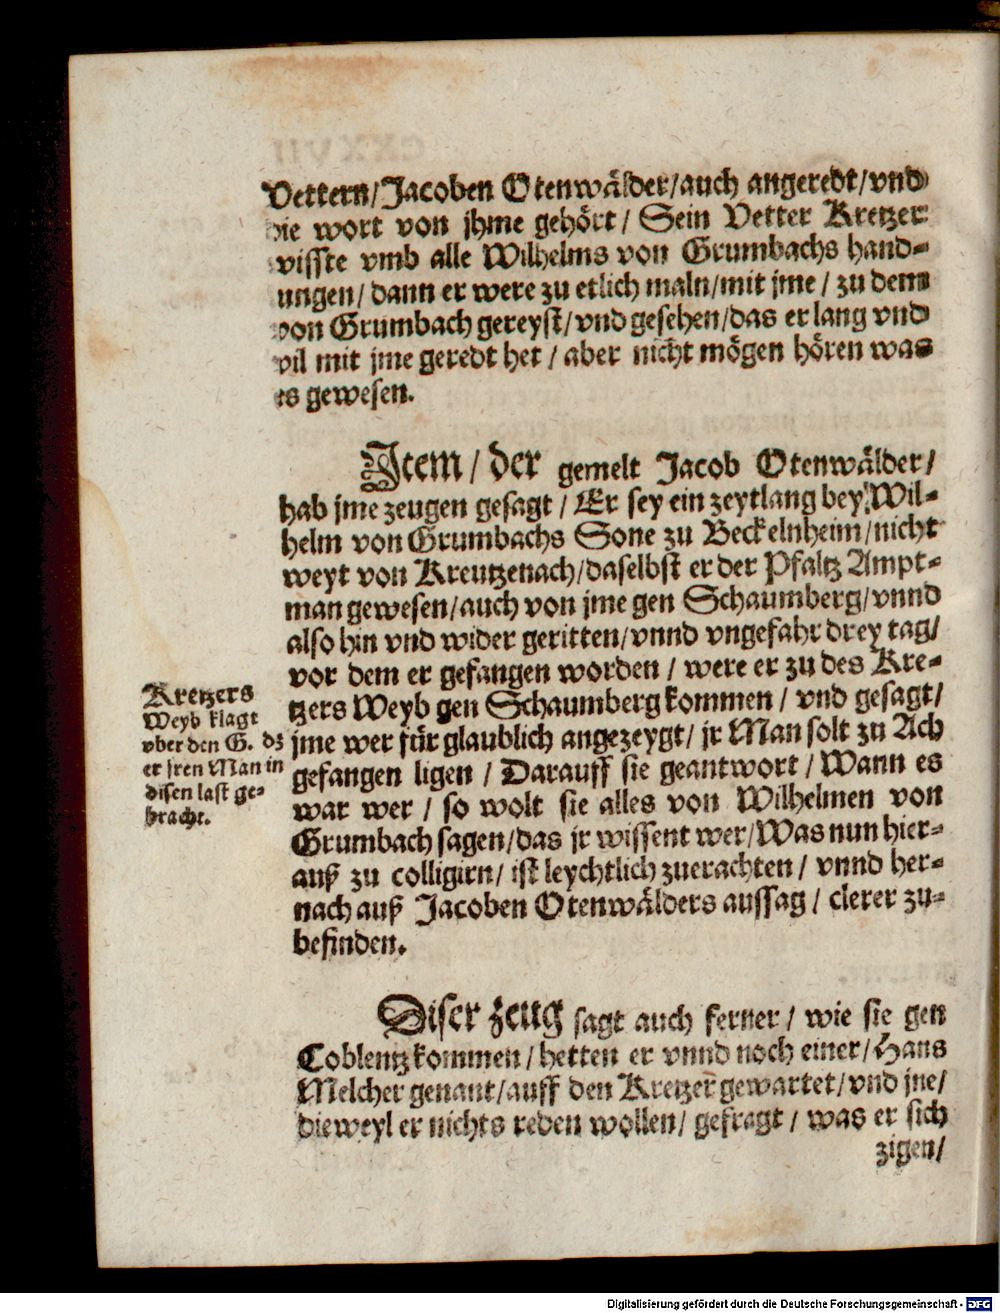 Vettern/Jacoben Otenwålder/auch angeredt/vnd
die wort von jhme gehört/ Sein Vetter Kretzer
wisste vmb alle Wilhelms von Grumbachs hand-
lungen/ dann er were zu etlich maln/mit jme/ zu dem
von Grumbach gereyst/vnd gesehen/das er lang vnd
vil mit jme geredt het/ aber nicht mögen hören was
es gewesen.
Item/ der gemelt Jacob Otenwålder/
hab jme zeugen gesagt/ Er sey ein zeytlang bey Wil-
helm von Grumbachs Sone zu Beckelnheim/nicht
weyt von Kreutzenach/daselbst er der Pfaltz Ampt-
man gewesen/auch von jme gen Schaumberg/vnnd
also hin vnd wider geritten/vnnd vngefahr drey tag/
vor dem er gefangen worden/ were er zu des Kre-
tzers Weyb gen Schaumberg kommen/ vnd gesagt/
jme wer für glaublich angezeygt/ jr Man solt zu Ach
gefangen ligen/ Darauff sie geantwort/ Wann es
war wer/ so wolt sie alles von Wilhelmen von
Grumbach sagen/das jr wissent wer/Was nun hier-
auß zu colligirn/ ist leychtlich zuerachten/ vnnd her-
nach auß Jacoben Otenwålders aussag/ clerer zu-
befinden.
Kretzers
Weyb klagt
vber den G. dz
er jren Man in
disen last ge-
bracht.
Diser zeug sagt auch ferner/ wie sie gen
Coblentz kommen/ hetten er vnnd noch einer/ Hans
Melcher genant/auff den Kretzer gewartet/vnd jne/
dieweyl er nichts reden wollen/ gefragt/ was er sich
zigen/
Digitalisierung gefördert durch die Deutsche Forschungsgemeinschaft - DFG